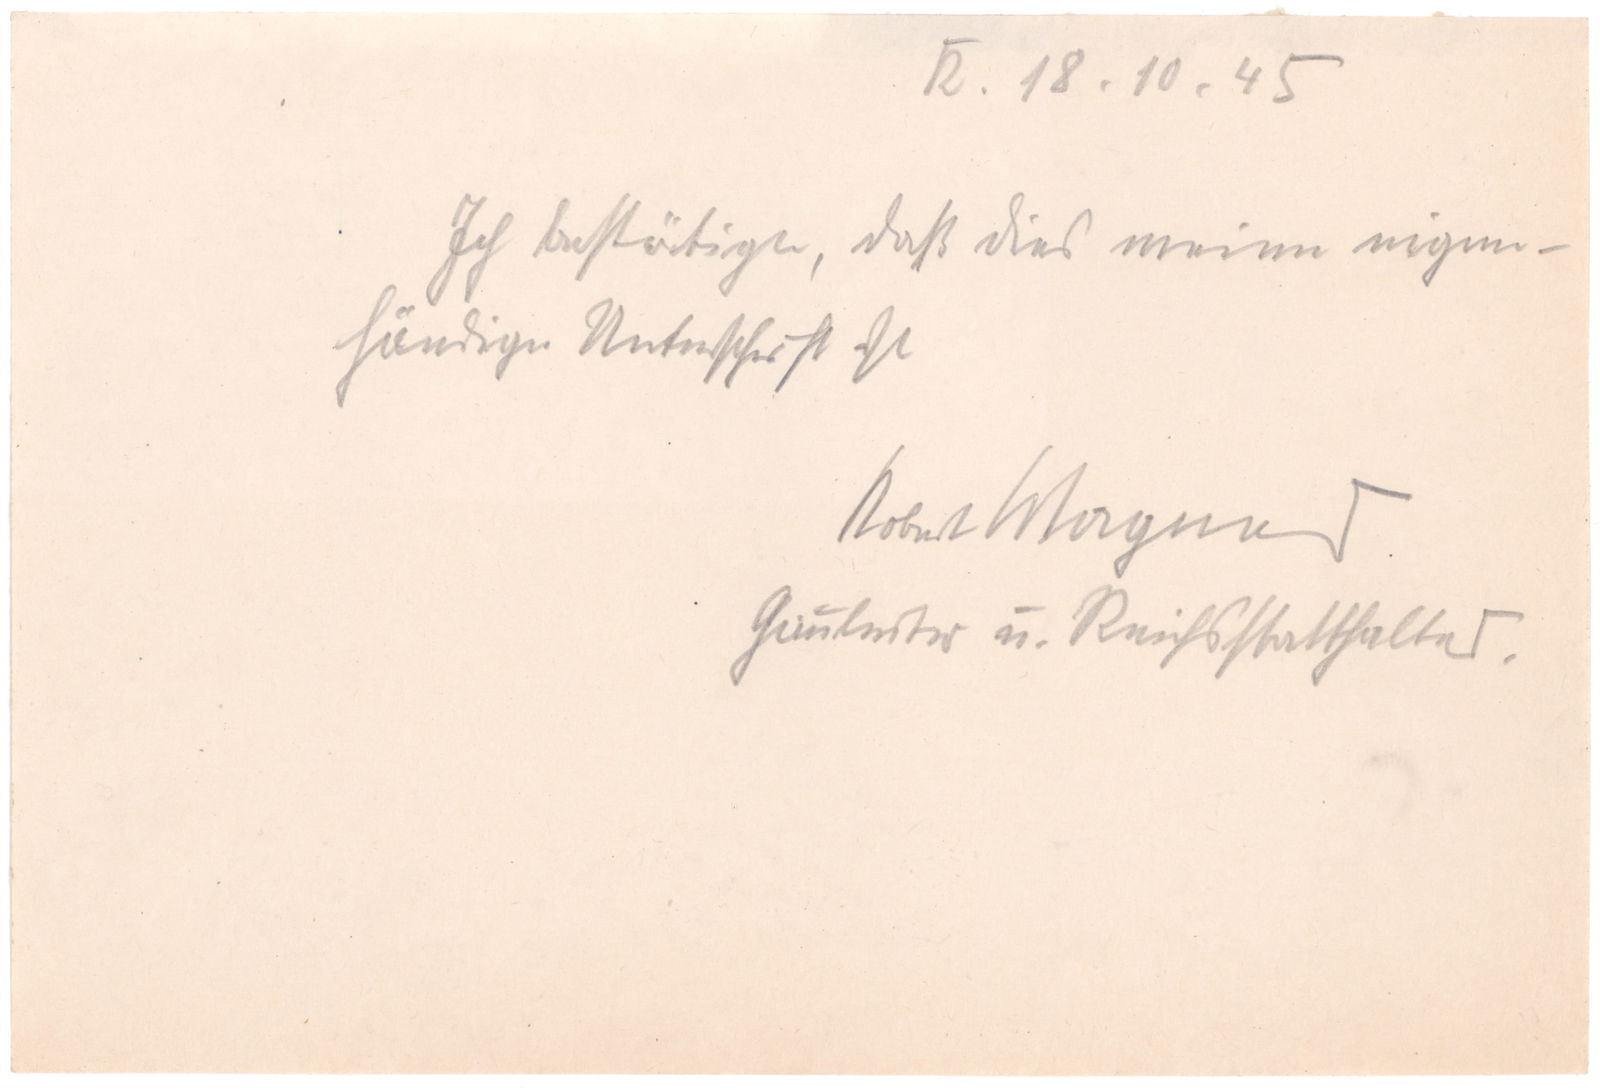 K. 18.10.45
Ich bestätige, daß dies meine eigen-
händige Unterschrift ist
Robert Wagner
Gauleiter u. Reichsstatthalter.